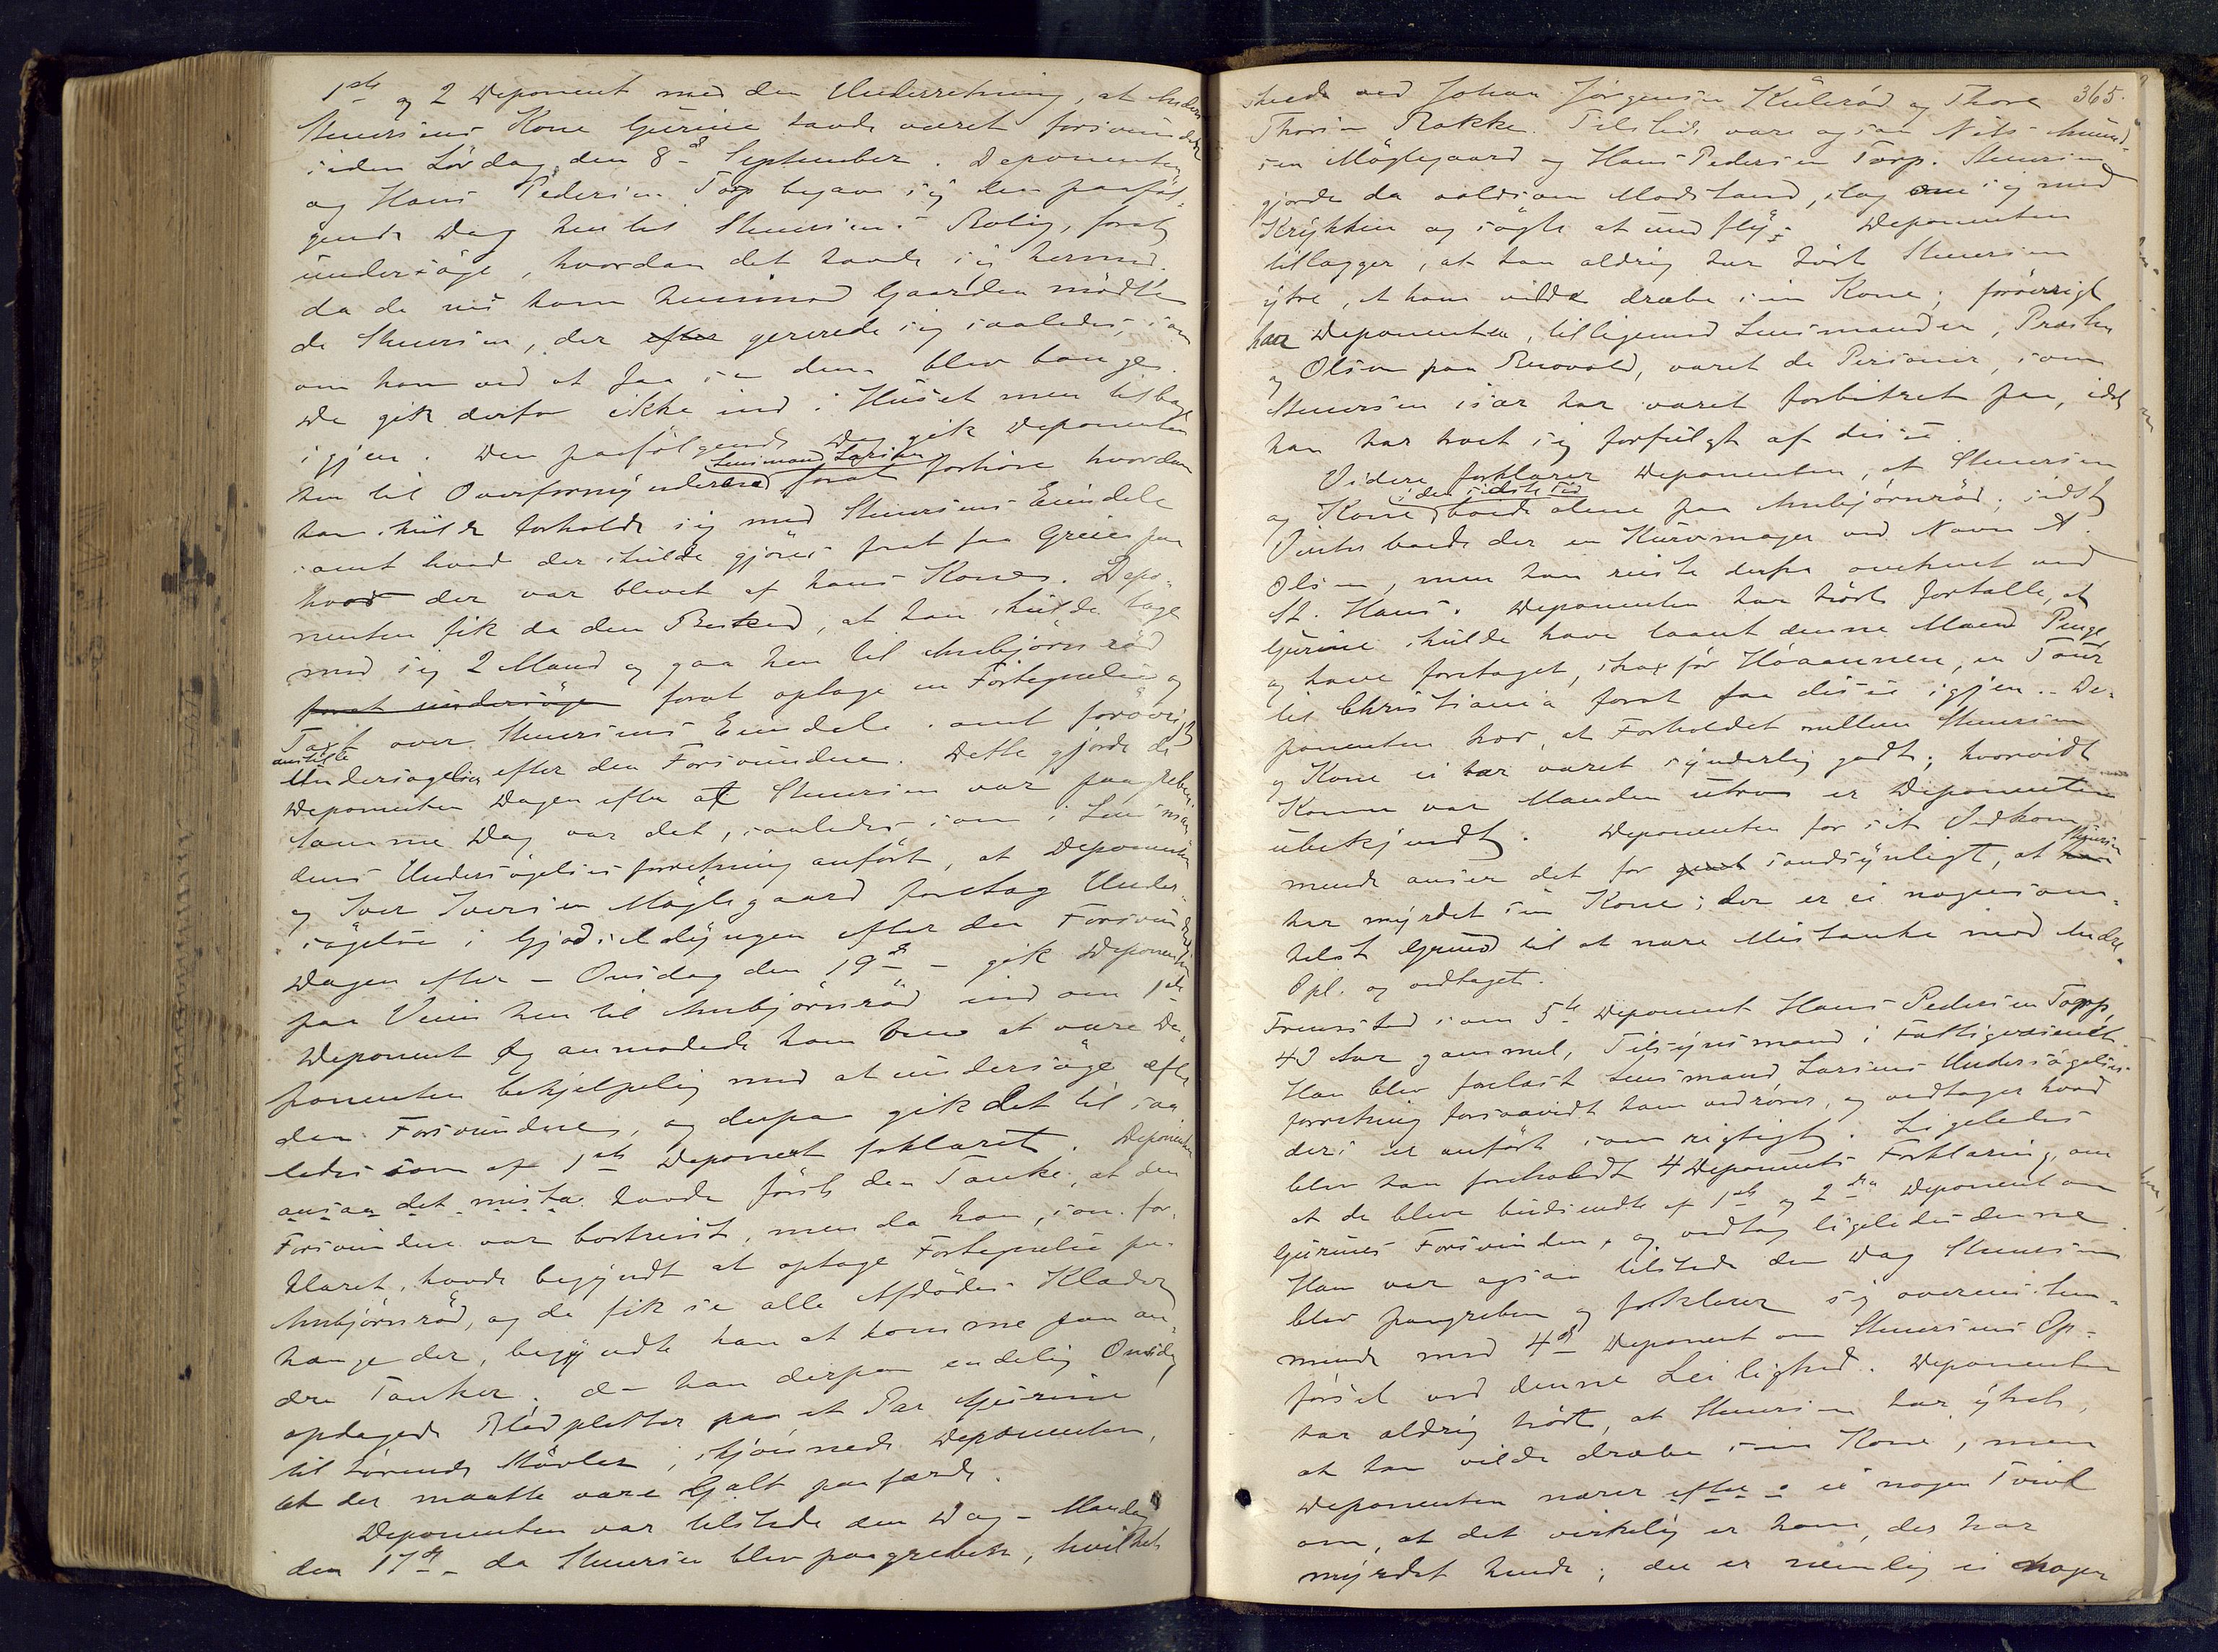 1ste og 2 Deponent med den Underretning, at Anders
Stuersens Kone Gurine havde været forsvundet
siden Lørdag den 8de September. Deponenten
og Hans Pedersen Torp begav sig den paaføl-
gende Dag hen til Stuersens Bolig, forat
undersøge, hvordan det havde sig hermed.
da de nu kom henimod Gaarden mødte
de Stuersen, der efter gererede sig saaledes, som
om han ved at faa se dem blev bange.
De gik derfor ikke ind i Huset men tilbage
igjen. Den paafølgende Dag gik Deponenten
Lensmand Larsen
hen til Overformynderen forat forhøre hvordan
han skulde forholde sig med Stuersens Eiendele
samt hvad der skulde gjøres forat faa Greie paa
hvad der var blevet af hans Kone. Depo-
nenten fik da den Besked, at han skulde tage
med sig 2 Mand og gaa hen til Anbjørnrød
forat undersøge forat optage en Fortegnelse og
Taxt over Stuersens Eiendele samt forøvrigt
anstille
Undersøgelser efter den Forsvundne. Dette gjorde de
Deponenten Dagen efter at Stuersen var paagreben.
Samme Dag var det, saaledes som i Lensman-
dens Undersøgelsesforretning anført, at Deponenten
og Iver Iversen Møglegaard foretog Under-
søgelse i Gjødseldyngen efter den Forsvundne
Dagen efter - Onsdag den 19de - gik Deponenten
paa Veien hen til Anbjørnrød ind om 1ste
Deponent og anmodede ham om at være De-
ponenten behjelpelig med at undersøge efter
den Forsvundne, og derpaa gik det til saa-
ledes som af 1ste Deponent forklaret. Deponenten
ansaa det mista havde først den Tanke, at den
Forsvundne var bortreist, men da han, som for-
klaret, havde begyndt at optage Fortegnelse paa
Anbjørnrød, og de fik se alle Afdødes Klæder
hange der, begyndte han at komme paa an-
dre Tanker, da han derpaa endelig Onsdag
opdagede Blodpletter paa et Par Gurine
tilhørende Støvler, skjønnede Deponenten,
at der maatte være Galt paafærde.
Deponenten var tilstede den Dag - Mandag
den 17de - da Stuersen blev paagreben, hvilket
365.
skede ved Johan Jørgensen Kulerød og Thore
Thorsen Bakke. Tilstede vare ogsaa Nils Amund-
sen Møglegaard og Hans Pedersen Torp. Stuersen
gjorde da voldsom Modstand, slog om sig med
Krykken og søgte at undfly. Deponenten
tillægger, at han aldrig har hørt Stuersen
ytre, at han vilde dræbe sin Kone; forøvrigt
har Deponenten, tilligemed Lensmanden, Præsten
og Olsen paa Ruovold, været de Personer, som
Stuersen især har været forbitret paa, idet
han har troet sig forfulgt af disse.
Videre forklarer Deponenten, at Stuersen
i den sidste Tid
og Kone boede alene paa Anbjørnrød; sidst
Vinter boede der en Kurvmager ved Navn A.
Olsen, men han reiste derfra omtrent ved
St. Hans. Deponenten har hørt fortalle, at
Gurine skulde have laant denne Mand Penge
og have foretaget, strax før Høaannen, en Tour
til Christiania forat faa disse igjen. De-
ponenten tror, at Forholdet mellem Stuersen
og Kone ei har været synderlig godt; hvorvidt
Konen var Manden utro er Deponenten
ubekjendt. Deponenten for sit Vedkom-
Stuersen
mende anser det for sandsynligt, at han
har myrdet sin Kone; der er ei nogensom-
helst Grund til at nære Mistanke mod Andre.
Opl. og vedtaget.
Fremstod som 5te Deponent Hans Pedersen Torp,
43 Aar gammel, Tilsynsmand i Fattigvæsenet.
Han blev forelæst Lensmand Larsens Undersøgelses-
forretning forsaavidt ham vedrører, og vedtager hvad
deri er anført som rigtigt. Ligeledes
blev han foreholdt 4 Deponents Forklaring, om
at de bleve budsendte af 1ste og 2den Deponent om
Gurines Forsvinden, og vedtog ligeledes denne.
Han var ogsaa tilstede den Dag Stuersen
blev paagreben og forklarer sig overensstem-
mende med 4de Deponent om Stuersens Op-
førsel ved denne Leilighed. Deponenten
har aldrig hørt, at Stuersen har ytret,
at han vilde dræbe sin Kone, men
Deponenten nærer efter ei nogen Tvivl
om, at det virkelig er ham, der har
myrdet hende; der er nemlig ei nogen